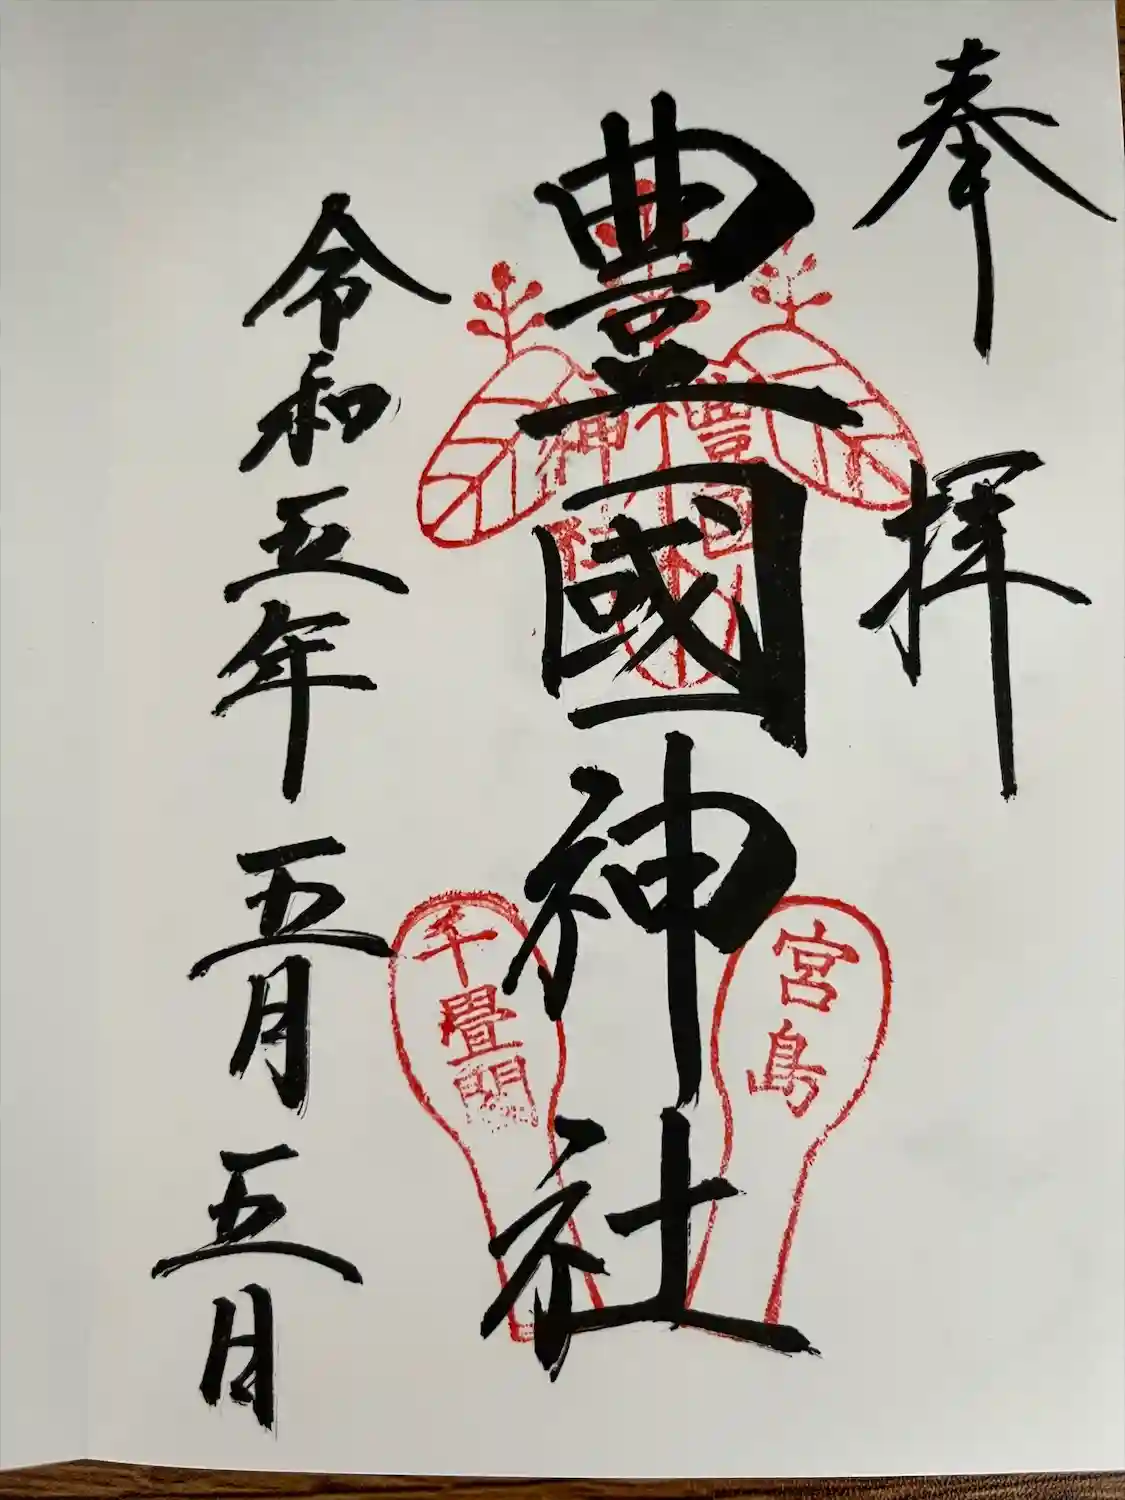 奉拝
豊國神社
令和五年五月五日
豊國
神社
宮島
千畳閣